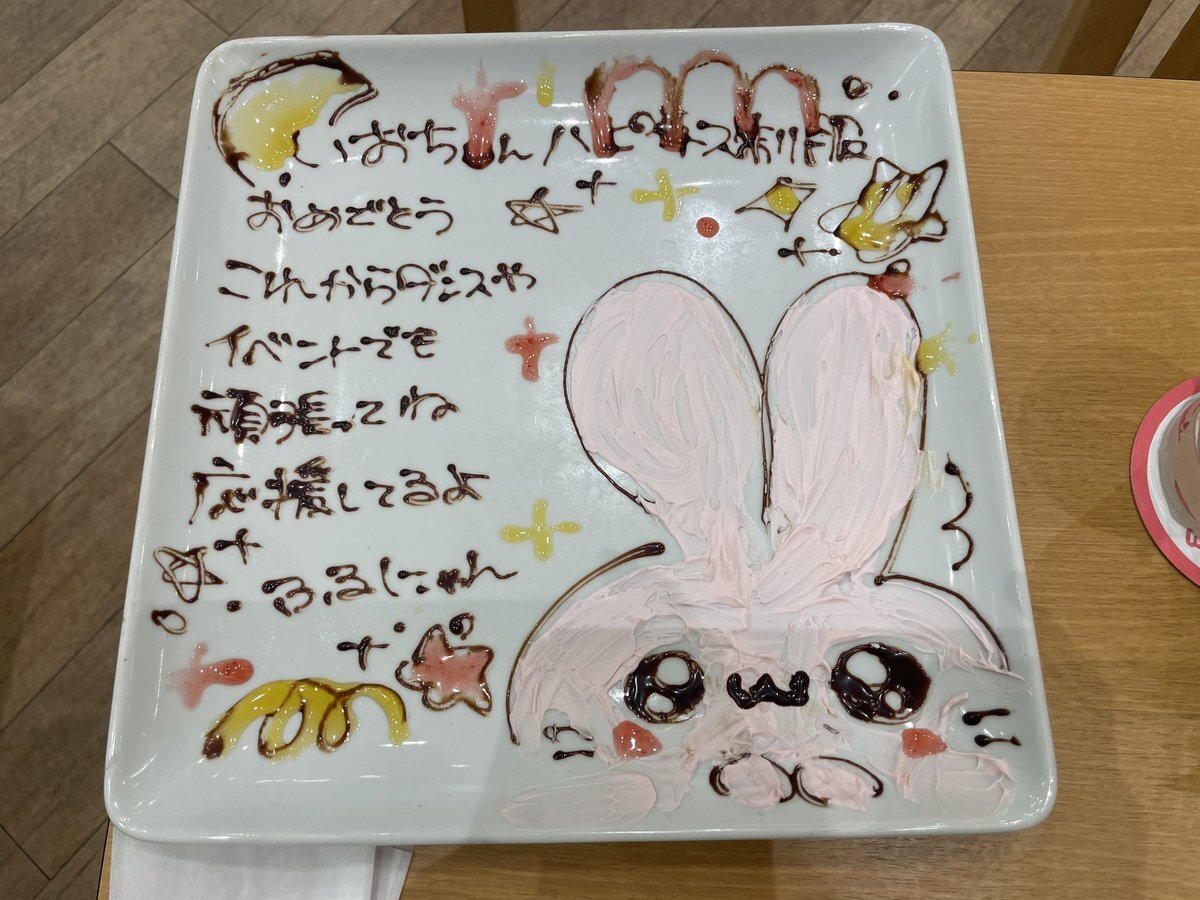 いおちゃん ハピネス制服
おめでとう
これからダンスや
イベントでも
頑張ってね
応援してるよ
るるにゃん